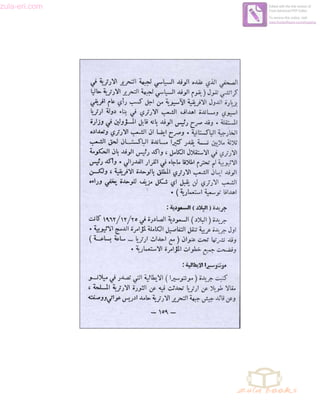 zula-eri.com
Edited with the trial version of
Foxit Advanced PDF Editor
To remove this notice, visit:
www.foxitsoftware.com/shopping
الصحفي الذي عقده الوفد السياسي لجبهة التحرير الارترية في
كراتشي تقول ( يقوم الوفد السياسي لجبهة التحرير الارترية حاليا
بزيارة الدول الافريقية الآسيوية من اجل كسب رأي عام افريقي
اسيوي ومساندة اهداف الشعب الارتري في بناء دولة ارتريا
المستقلة ٠ وقد صرح رئيس الوفد بانه قابل المسؤولين في وزارة
الخارجية الباكستانية ٠ وصرح ايضا ان الشعب الارتري وتعداده
ثلاثة ملايين نسمة يقدر كثيرا مساندة الباكستان لحق الشعب
الارتري في الاستقلال الكامل ، واكد رئيس الوفد بان الحكومة
الاثيوبية لم تحترم اطلاقا ماجاء في القرار الفدرالي ٠ وأكد رئيس
الوفد ايمان الشعب الارتري المطلق بالوحدة الافريقية ، ولكن
الشعب الارتري لن يقبل اي شكل مزيف للوحدة يخفي وراءه
اهدافا توسعية استعمارية ) ٠
جريدة ( البلاد ) السعودية :
جريدة ( البلاد ) السعودية الصادرة في ١٩٦٢/١٢/٢٥ كانت
اول جريدة عربية تنقل التفاصيل الكاملة لمؤامرة الدمج الاثيوبية ٠
وقد نشرتها تحت عنوان ( مع احداث ارتريا ــ ساعة بساعة )
وفضحت جميع خطوات المؤامرة الاستعمارية ٠
مونتوسيرا الايطالية :
كتبت جريدة ( مونتوسيرا ) الايطالية التي تصدر في ميلانو
مقالا طويلا عن ارتريا تحدثت فيه عن الثورة الارترية المسلحة ،
وعن قائد جيش جبهة التحرير الارترية حامد ادريس عواتي ووصفته
— ١٥٩ —
zula books